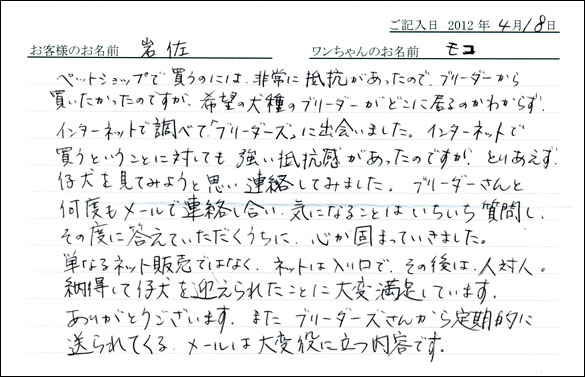 ご記入日 2012年 4月18日
お客様のお名前 岩佐 ワンちゃんのお名前 モコ
ペットショップで買うのには、非常に抵抗があったので、ブリーダーから
買いたかったのですが、希望の犬種のブリーダーがどこに居るのかわからず、
インターネットで調べて、「ブリーダーズ」に出会いました。インターネットで
買うということに対しても強い抵抗感があったのですが、とりあえず、
仔犬を見てみようと思い連絡してみました。ブリーダーさんと
何度もメールで連絡し合い、気になることはいちいち質問し、
その度に答えていただくうちに、心が固まっていきました。
単なるネット販売ではなく、ネットは入り口で、その後は、人対人。
納得して仔犬を迎えられたことに大変満足しています。
ありがとうございます。また ブリーダーズさんから定期的に
送られてくる、メールは大変役に立つ内容です。